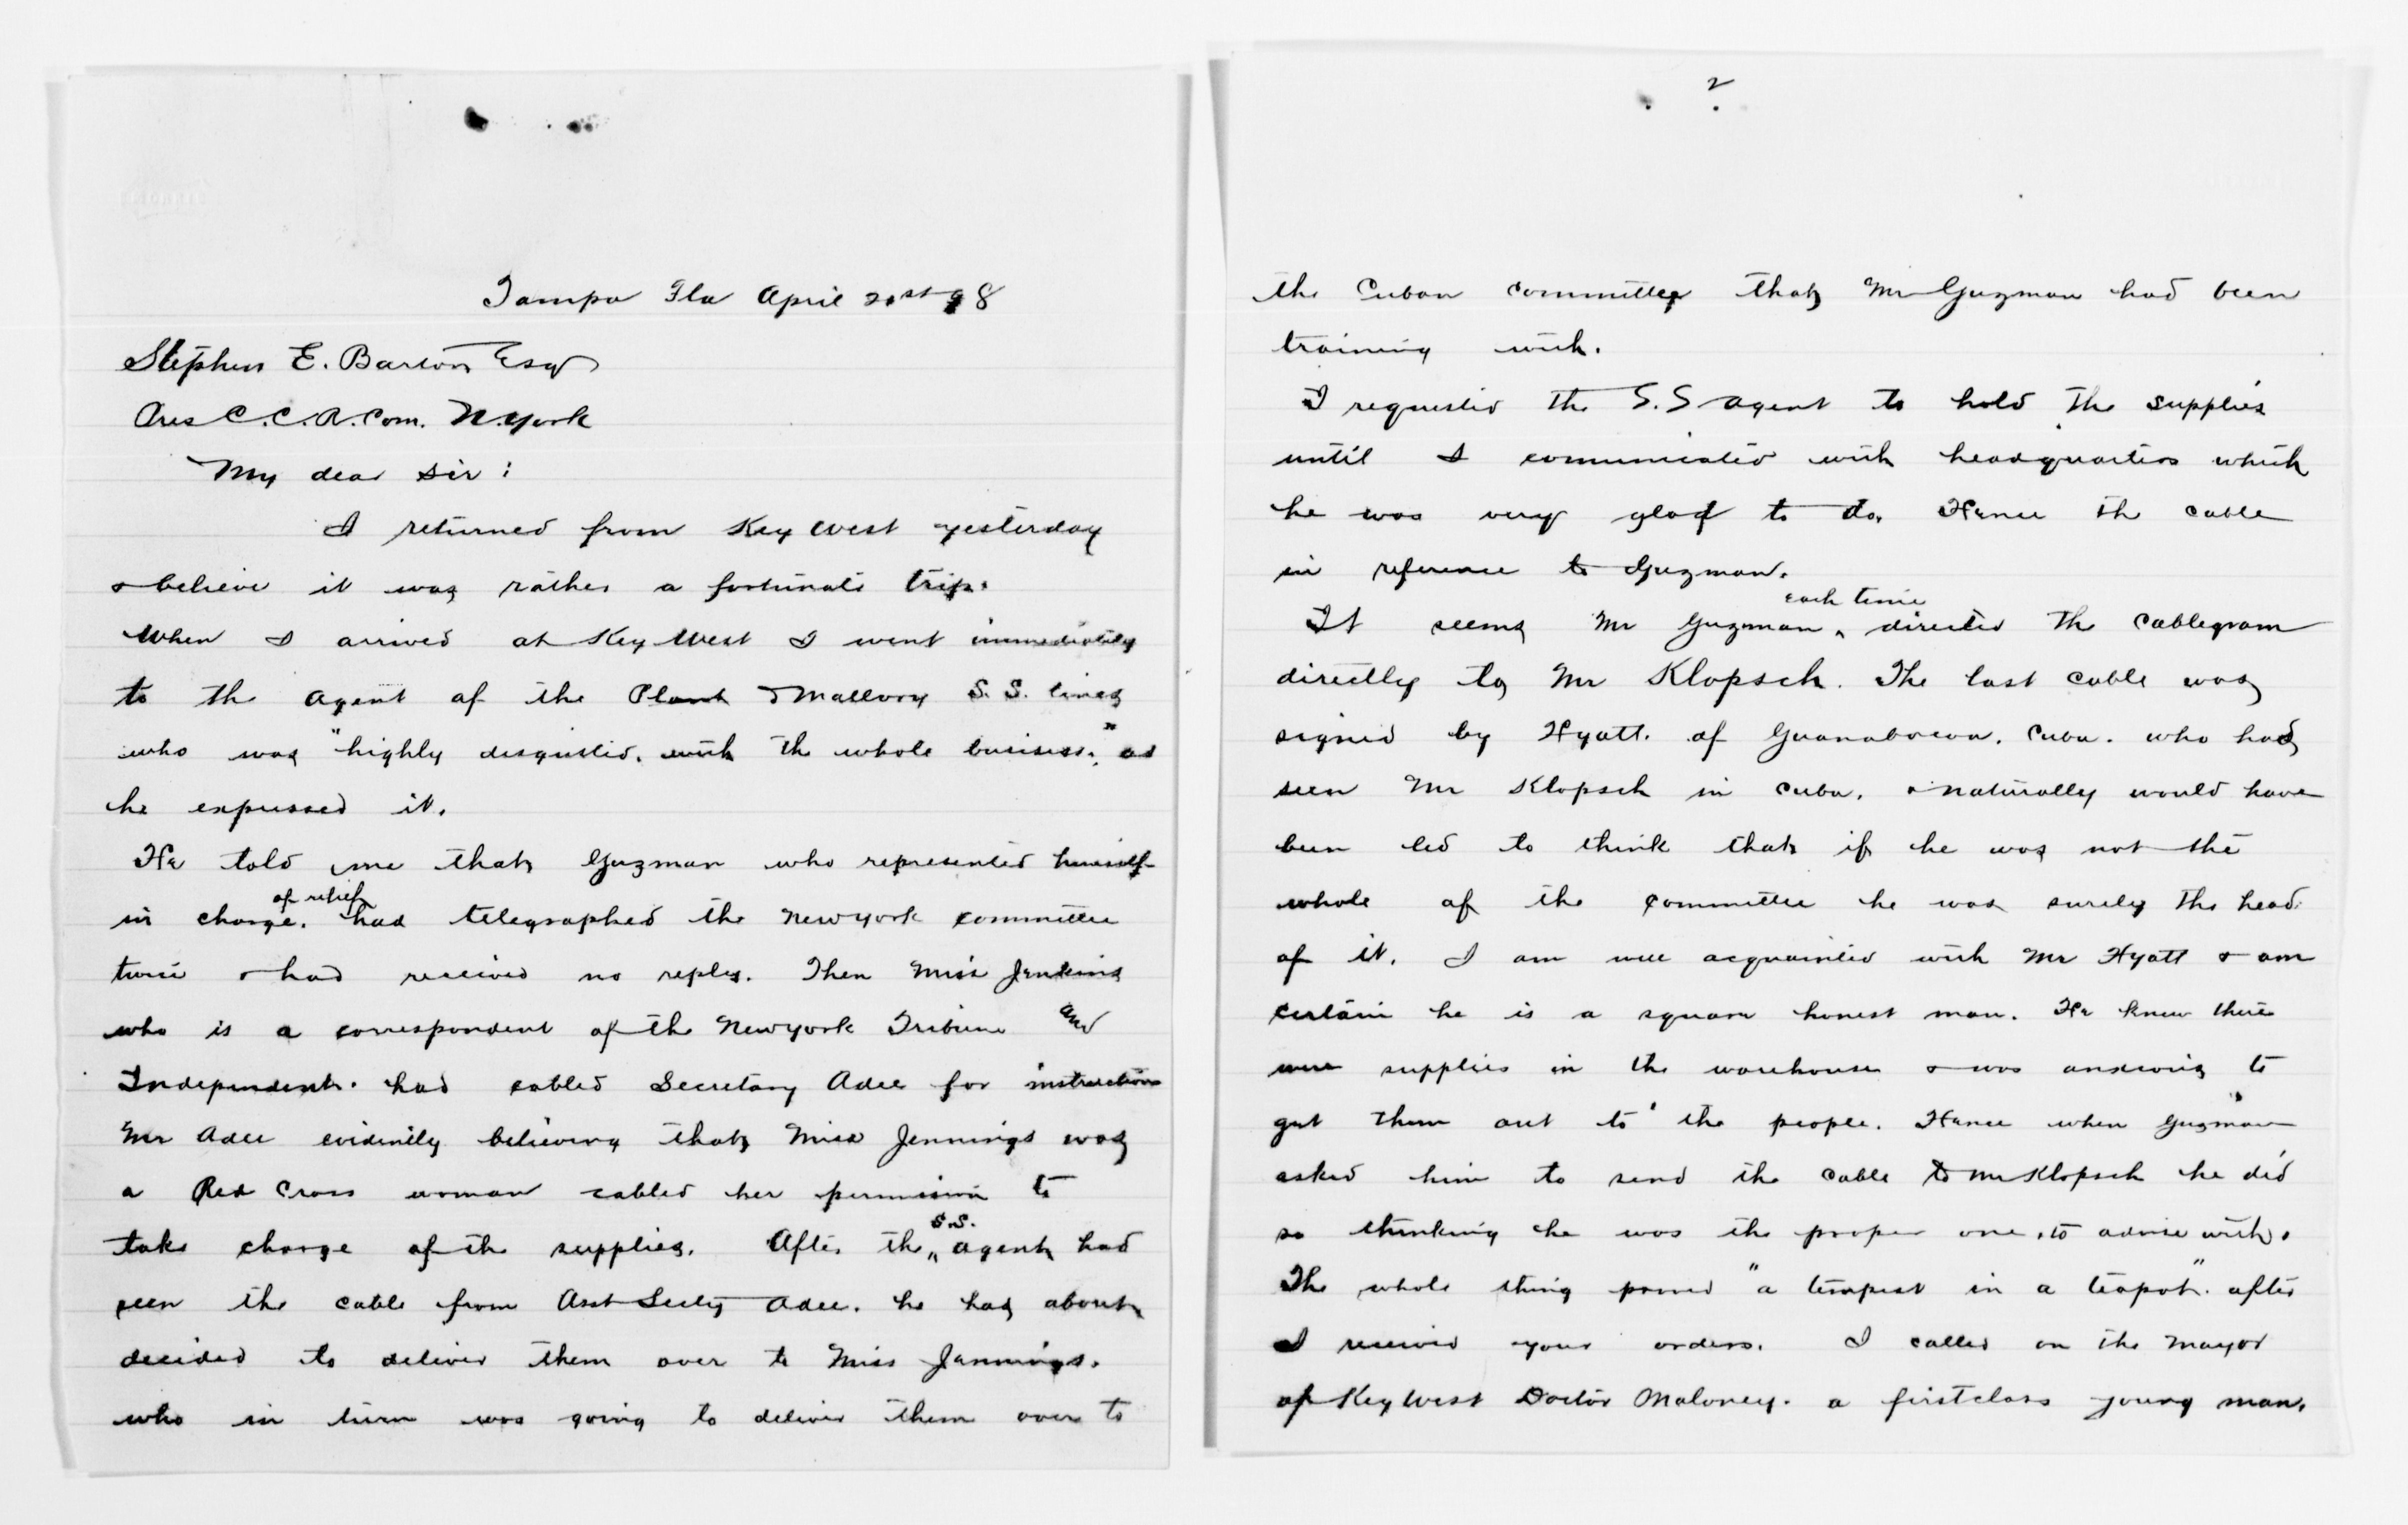 Tampa Fla April 21st 98
Stephen E. Barton Esq
Pres C.C.R.Com. N.York
My dear Sir:
I returned from Key West yesterday
& believe it was rather a fortunate trip.
When I arrived at Key West I went immediately
to the agent of the Plant & Mallory S. S. lines
who was "highly disgusted. with the whole business." as
he expressed it.
He told me that Guzman who represented himself
of relief
in charge. had telegraphed the New york committee
twice & had received no reply. Then Miss Jenkins
who is a correspondent of the New york Tribune and
Independent. had cabled Secretary Adee for instructions
Mr Adee evidently believing that Miss Jennings was
a Red Cross woman cabled her permission to
S.S.
take charge of the supplies. After the agent had
seen the cable from Asst Secty Adee. he had about
decided to deliver them over to Miss Jennings.
who in turn was going to deliver them over to
2
the Cuban committee that Mr Guzman had been
training with.
I requested the S.S agent to hold the supplies
until I comunicated with headquarters which
he was very glad to do. Hence the cable
in reference to Guzman.
each time
It seems Mr Guzman directed the cablegram
directly to Mr Klopsch. The last cable was
signed by Hyatt. of Guanabacoa. Cuba. who had
seen Mr Klopsch in Cuba. & naturally would have
been led to think that if he was not the
whole of the committee he was surely the head
of it. I am well acquainted with Mr Hyatt & am
certain he is a square honest man. He knew there
were supplies in the warehouse & was anxious to
get them out to the people. Hence when Guzman
asked him to send the cable to Mr Klopsch he did
so thinking he was the proper one. to advise with.
The whole thing proved "a tempest in a teapot". after
I received your orders. I called on the Mayor
of Key West Doctor Maloney. a first class young man.